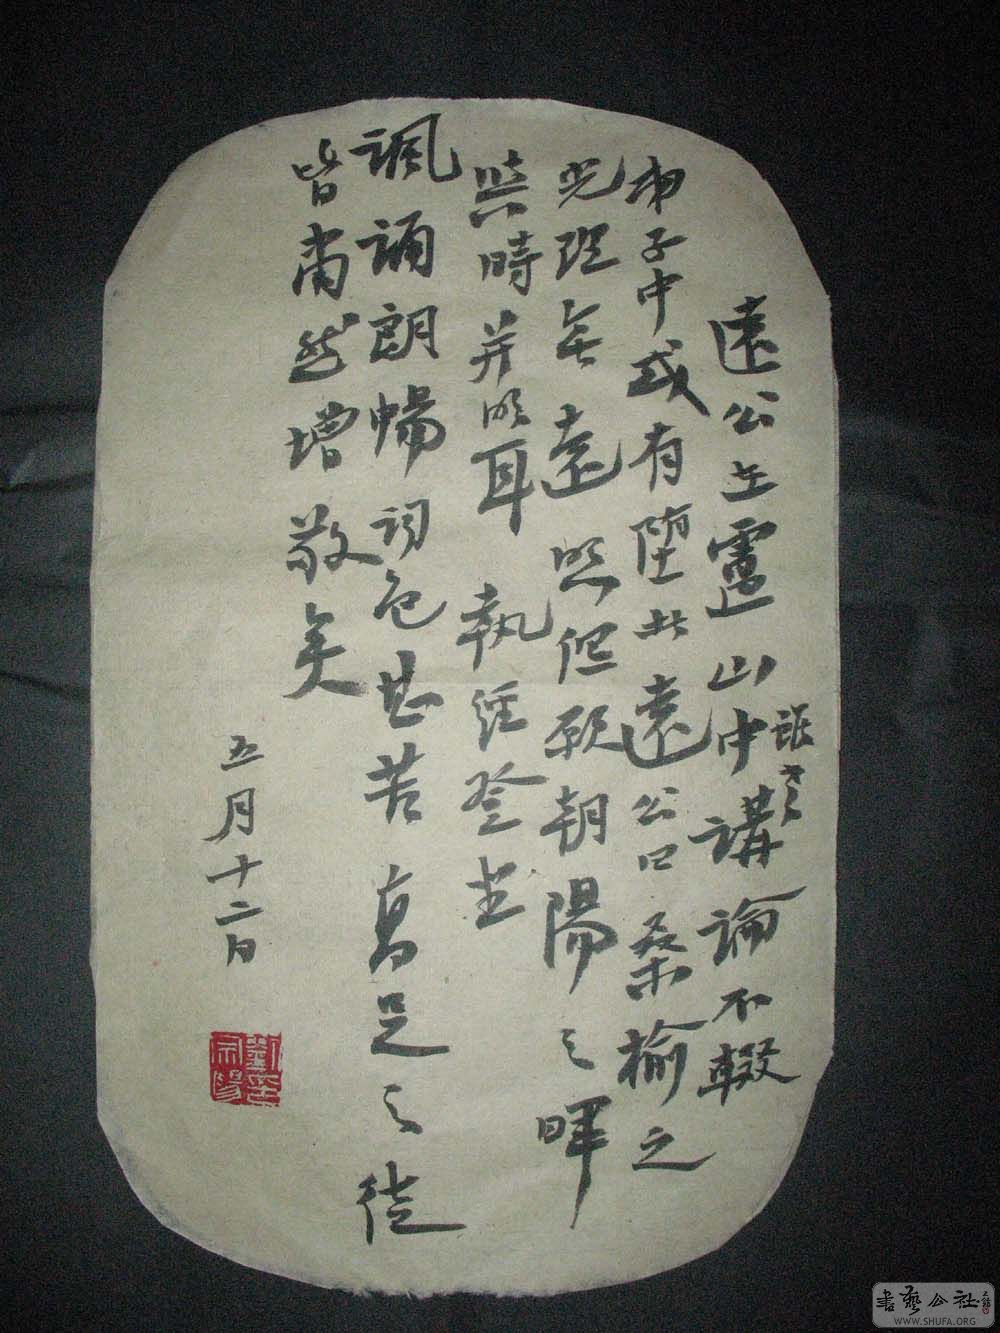 遠公在廬山中講論不輟
雖老
弟子中或有墮者遠公曰桑榆之
光理無遠照但願朝陽之暉
與時并明耳執經登坐
諷誦朗暢詞色甚苦高足之徒
皆肅然增敬矣
五月十二日
書藝公社
WWW.SHUFA.ORG